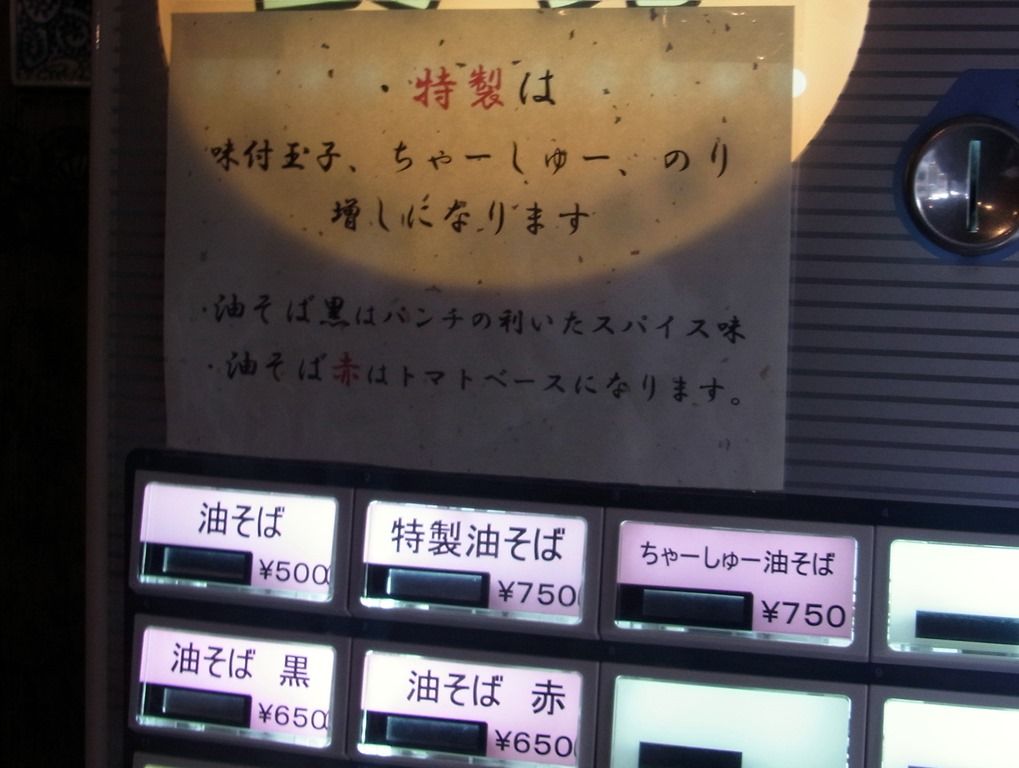 ・特製は
味付玉子、ちゃーしゅー、のり
増しになります
・油そば黒はパンチの利いたスパイス味
・油そば赤はトマトベースになります。
油そば
¥500
特製油そば
¥750
ちゃーしゅー油そば
¥750
油そば 黒
¥650
油そば 赤
¥650